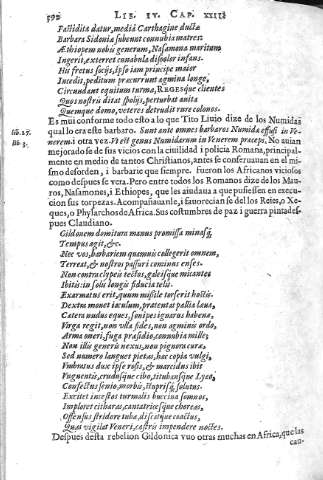 592 LIB. IV. CAP. XIIII
Pallidita datur, mediâ Carthagine ductæ
Barbara Sidoniæ subeunt connubia matres:
Æthiopem nobis generum, Nasamona maritum
Ingerit, exterret cunabula discolor infans.
His fretus socijs, ipso iam principe maior
Incedit, peditum præcurrunt agmina longe,
Circundant equitum turmæ, REGESque clientes
Quos nostris ditat spolijs, perturbat anita
Quemque domo, veteres detrudit rure colonos.
Es mui conforme todo esto a lo que Tito Livio dize de los Numidas
lib. 29. qual lo era este barbaro. Sunt ante omnes barbaros Numidæ effusi in Ve-
lib. 3. nerem i otra vez. Vt est genus Numidarum in Venerem præceps, No auian
mejorado se de sus vicios con la ciuilidad i policia Romana, principal-
mente en medio de tantos Christianos, antes se conseruauan en el mi-
smo desorden, i barbarie que siempre. fueron los Africanos viciosos
como despues se vera. Pero entre todos los Romanos dize de los Mau-
ros, Nasamones, i Ethiopes, que les aiudaua a que pusiessen en execu-
cion sus torpezas. Acompañauanle, i fauorecian se del los Reies, o Xe-
ques, o Phylarchos de Africa. Sus costumbres de paz i guerra pinta des-
pues Claudiano.
Gildonem domitura manus promissa minasq;
Tempus agit, &c.
Nec vos, barbariem quamuis collegerit omnem,
Terreat, & nostros passuri cominus enses.
Non contra clypeis tectos, galeisque micantes
Ibitis: in solis longè fiducia telis.
Exarmatus erit, quum missile torserit hostis.
Dextra mouet iaculum, prætentat pallia læua,
Cætera nudus eques, sonipes ignarus habenæ,
Virga regit, non vlla fides, non agminis ordo,
Arma oneri, fuga præsidio, connubia mille,
Non illis generis nexus, non pignora curæ,
Sed numero languet pietas, hæc copia vulgi,
Vmbratus dux ipse rosis, & marcidus ibit
Vnguentis, crudusque cibo, titubansque Lyæo,
Confectus senio, morbis, stuprisq; solutus.
Excitet incestos turmalis buccina somnos,
Imploret citharas, cantatricesque choreas,
Offensus stridore tuba, discatque coactus,
Quas vigilat Veneri, castris impendere noctes.
Despues desta rebelion Gildonica vuo otras muchas en Africa, que las
cau-